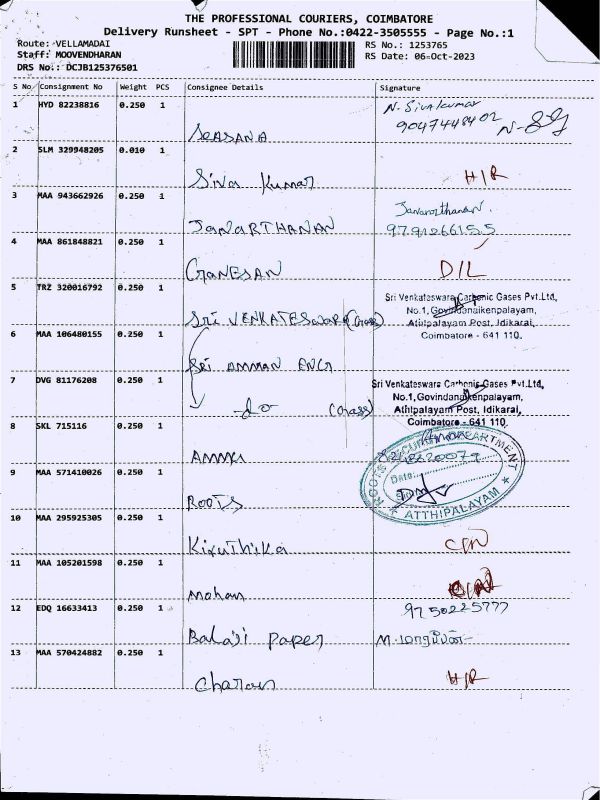 THE PROFESSIONAL COURIERS, COIMBATORE
Delivery Runsheet - SPT - Phone No.:0422-3505555 - Page No.:1
Route: VELLAMADAI
RS No.: 1253765
Staff: MOOVENDHARAN
RS Date: 06-Oct-2023
DRS No.: DCJB125376501
S No Consignment No Weight PCS Consignee Details Signature
1 HYD 82238816 0.250 1
N. Sivakumar
9047448402
SEASANA
2 SLM 329948205 0.010 1
Siva Kumar H/R
3 MAA 943662926 0.250 1
Janarthanan.
JANARTHANAN 9791266155
4 MAA 861848821 0.250 1
GANESAN D/L
5 TRZ 320016792 0.250 1
Sri Venkateswara Carbonic Gases Pvt.Ltd,
No.1,Govindanaikenpalayam,
Sri VENKATESwara (Gass) Athipalayam Post, Idikarai,
6 MAA 106480155 0.250 1
Coimbatore - 641 110.
Sri AMMAN ENG
7 DVG 81176208 0.250 1
Sri Venkateswara Carbonic Gases Pvt.Ltd,
No.1,Govindanaikenpalayam,
-do- (Gass) Athipalayam Post, Idikarai,
Coimbatore - 641 110.
8 SKL 715116 0.250 1
ROOTS SECURITY DEPARTMENT
Date:
ATTHIPALAYAM
9 MAA 571410026 0.250 1
ROOTS
10 MAA 295925305 0.250 1
Kiruthika
11 MAA 105201598 0.250 1
Mohan
12 EDQ 16633413 0.250 1
9750225777
Balaji Paper
13 MAA 570424882 0.250 1
Charan H/R